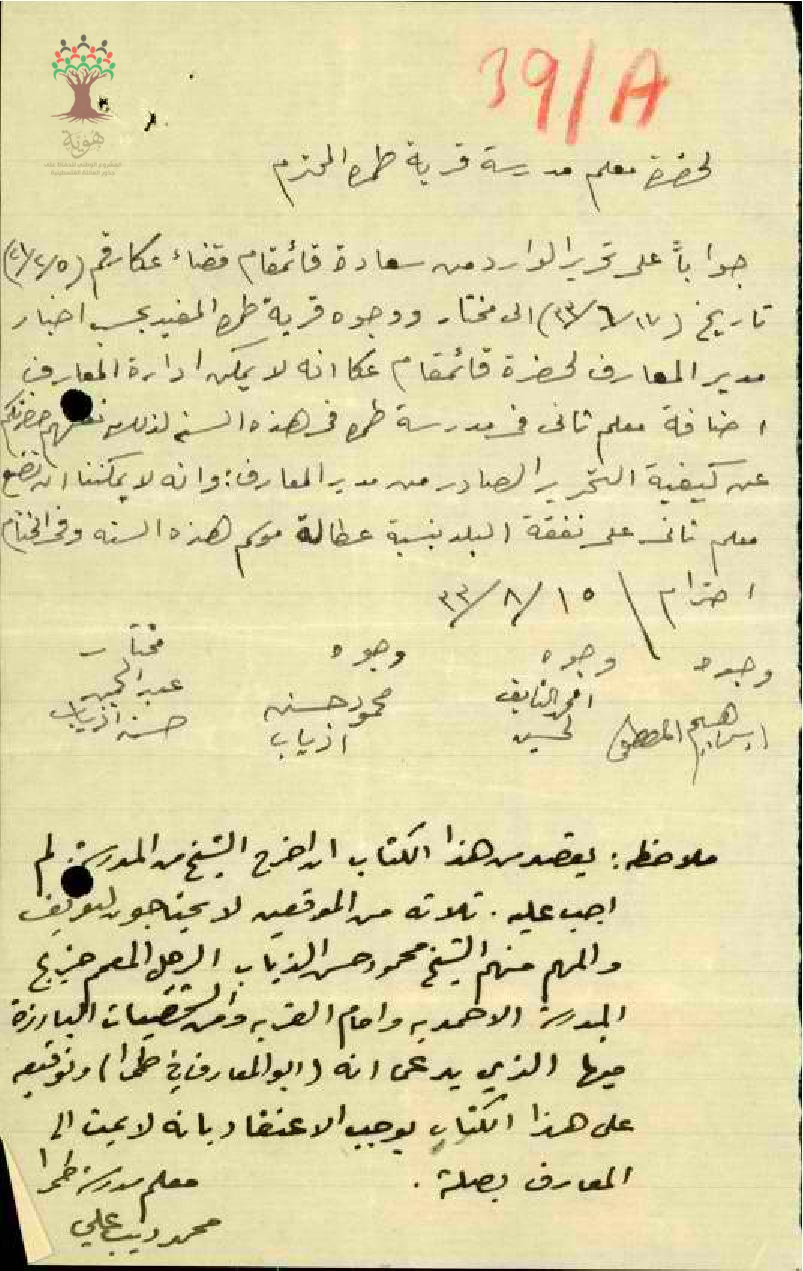 39/A
هوية
لحضرة معلم مدرسة قرية طمره المحترم
جواباً على تحرير الوارد من سعادة قائمقام قضاء عكا رقم
تاريخ (١٧/٦/٣٣) الى مختار ووجوه قرية طمره المفيد بحسب اخبار
مدير المعارف لحضرة قائمقام عكا انه لا يمكن ادارة المعارف
اضافة معلم ثاني في مدرسة طمره في هذه السنه لذلك حضرتكم
عن كيفية التحرير الصادر من مدير المعارف: وانه لا يمكننا ان نضع
معلم ثاني على نفقة البلد بنسبة عطالة موسم هذه السنه وفي الختام
احترام ١٥/٨/٣٣
وجوه وجوه وجوه مختار
ابراهيم المصطفى
لحسين
محمود حسن
اذياب
حسن اذياب
ملاحظه: يقصد من هذا الكتاب ان اخرج الشيخ من المدرسة. لم
اجب عليه. ثلاثه من الموقعين لا يحتاجون لتعريف
والمهم منهم الشيخ محمود حسن الذياب الرجل المعمم خريج
المدرسة الاحمديه وامام القريه ومن الشخصيات البارزة
فيها الذي يدعى انه (ابو المعارف في طمرا) وتوقيعه
على هذا الكتاب يوجب الاعتقاد بانه لا يمت الى
المعارف بصلة.
معلم مدرسة طمرا
محمد ديب علي